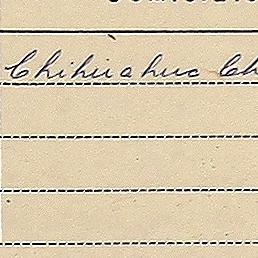 Chihuahua Ch